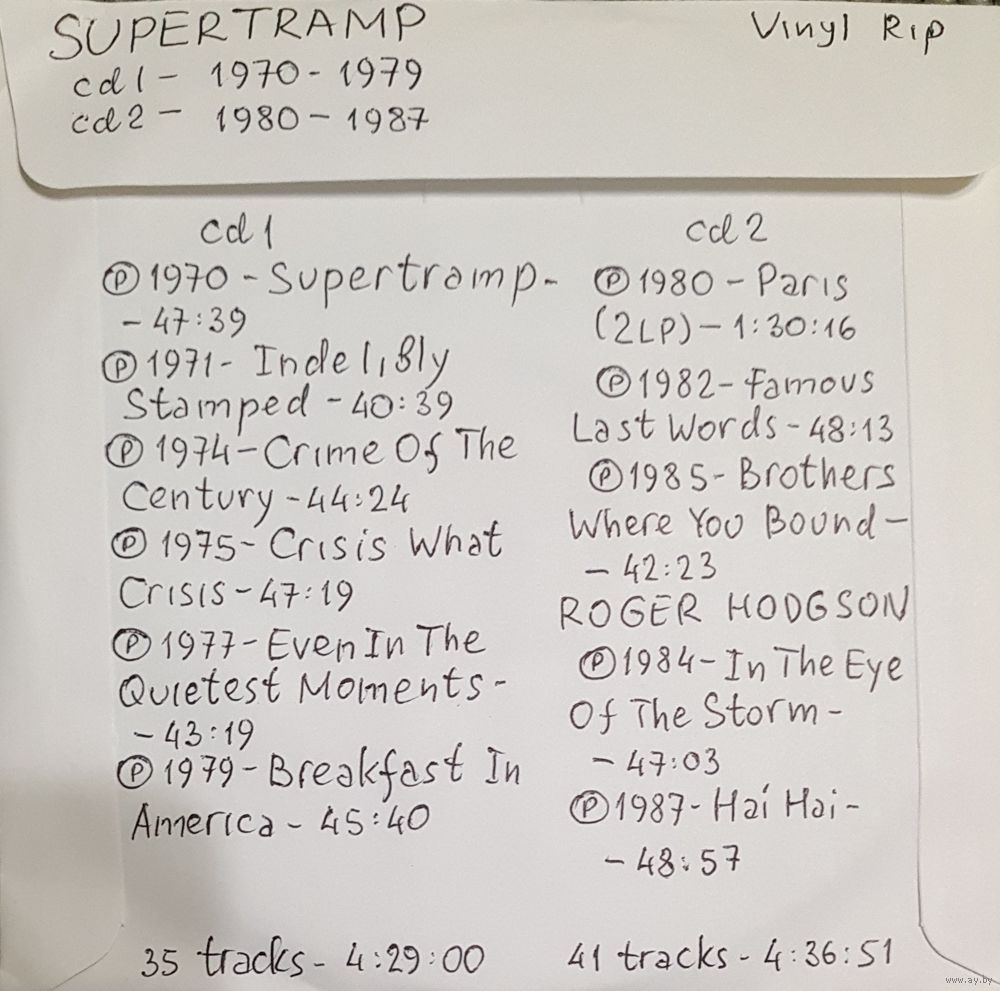 SUPERTRAMP
Vinyl Rip
cd1 - 1970 - 1979
cd2 - 1980 - 1987
cd1
Ⓟ 1970 - Supertramp -
- 47:39
Ⓟ 1971 - Indelibly
Stamped - 40:39
Ⓟ 1974 - Crime Of The
Century - 44:24
Ⓟ 1975 - Crisis What
Crisis - 47:19
Ⓟ 1977 - Even In The
Quietest Moments -
- 43:19
Ⓟ 1979 - Breakfast In
America - 45:40
35 tracks - 4:29:00
cd2
Ⓟ 1980 - Paris
(2LP) - 1:30:16
Ⓟ 1982 - Famous
Last Words - 48:13
Ⓟ 1985 - Brothers
Where You Bound -
- 42:23
ROGER HODGSON
Ⓟ 1984 - In The Eye
Of The Storm -
- 47:03
Ⓟ 1987 - Hai Hai -
- 48:57
41 tracks - 4:36:51
www.ay.by